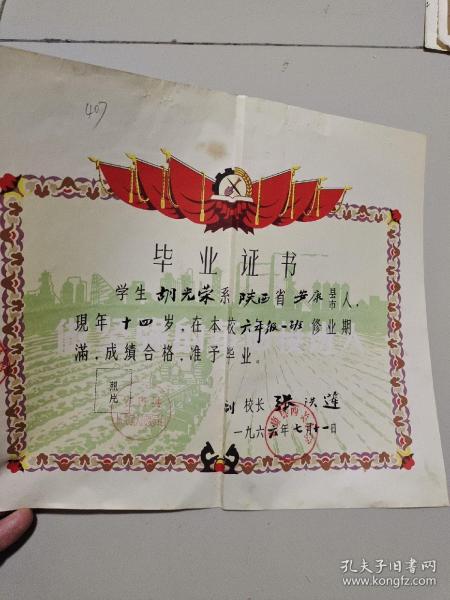 407
毕业证书
学生胡光荣系陕西省安康县市人，
现年十四岁，在本校六年级二班修业期
满，成绩合格，准予毕业。
照片
副校长 张洪莲
一九六六年七月十一日
孔夫子旧书网
www.kongfz.com